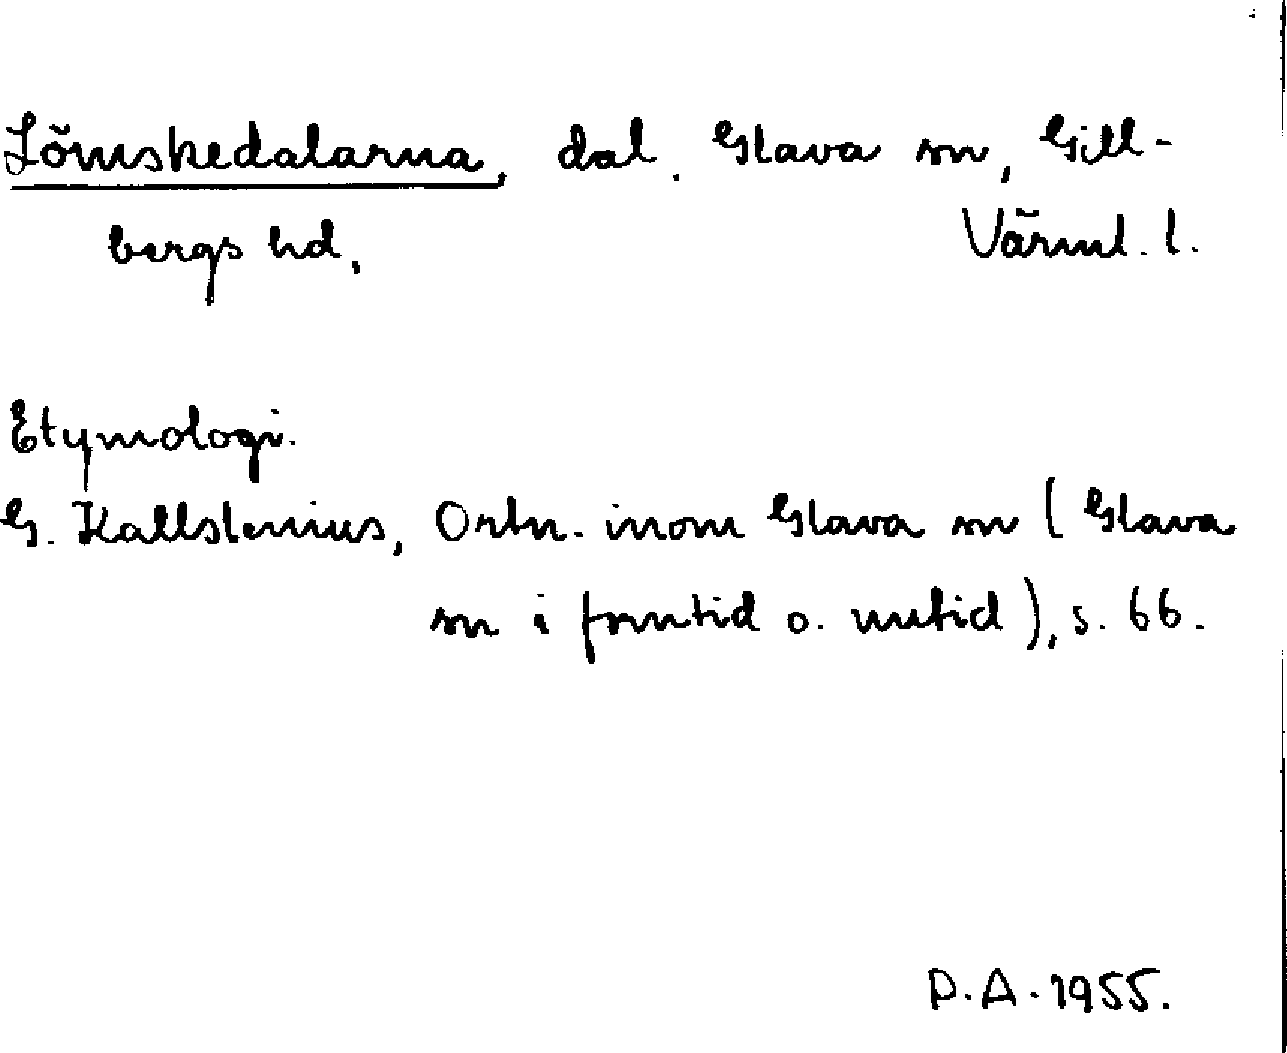 Lömskedalarna, dal. Glava sn, Gill-
bergs hd, Värml. l.
Etymologi.
G. Kallstenius, Ortn. inom Glava sn (Glava
sn i forntid o. nutid), s. 66.
P.A. 1955.